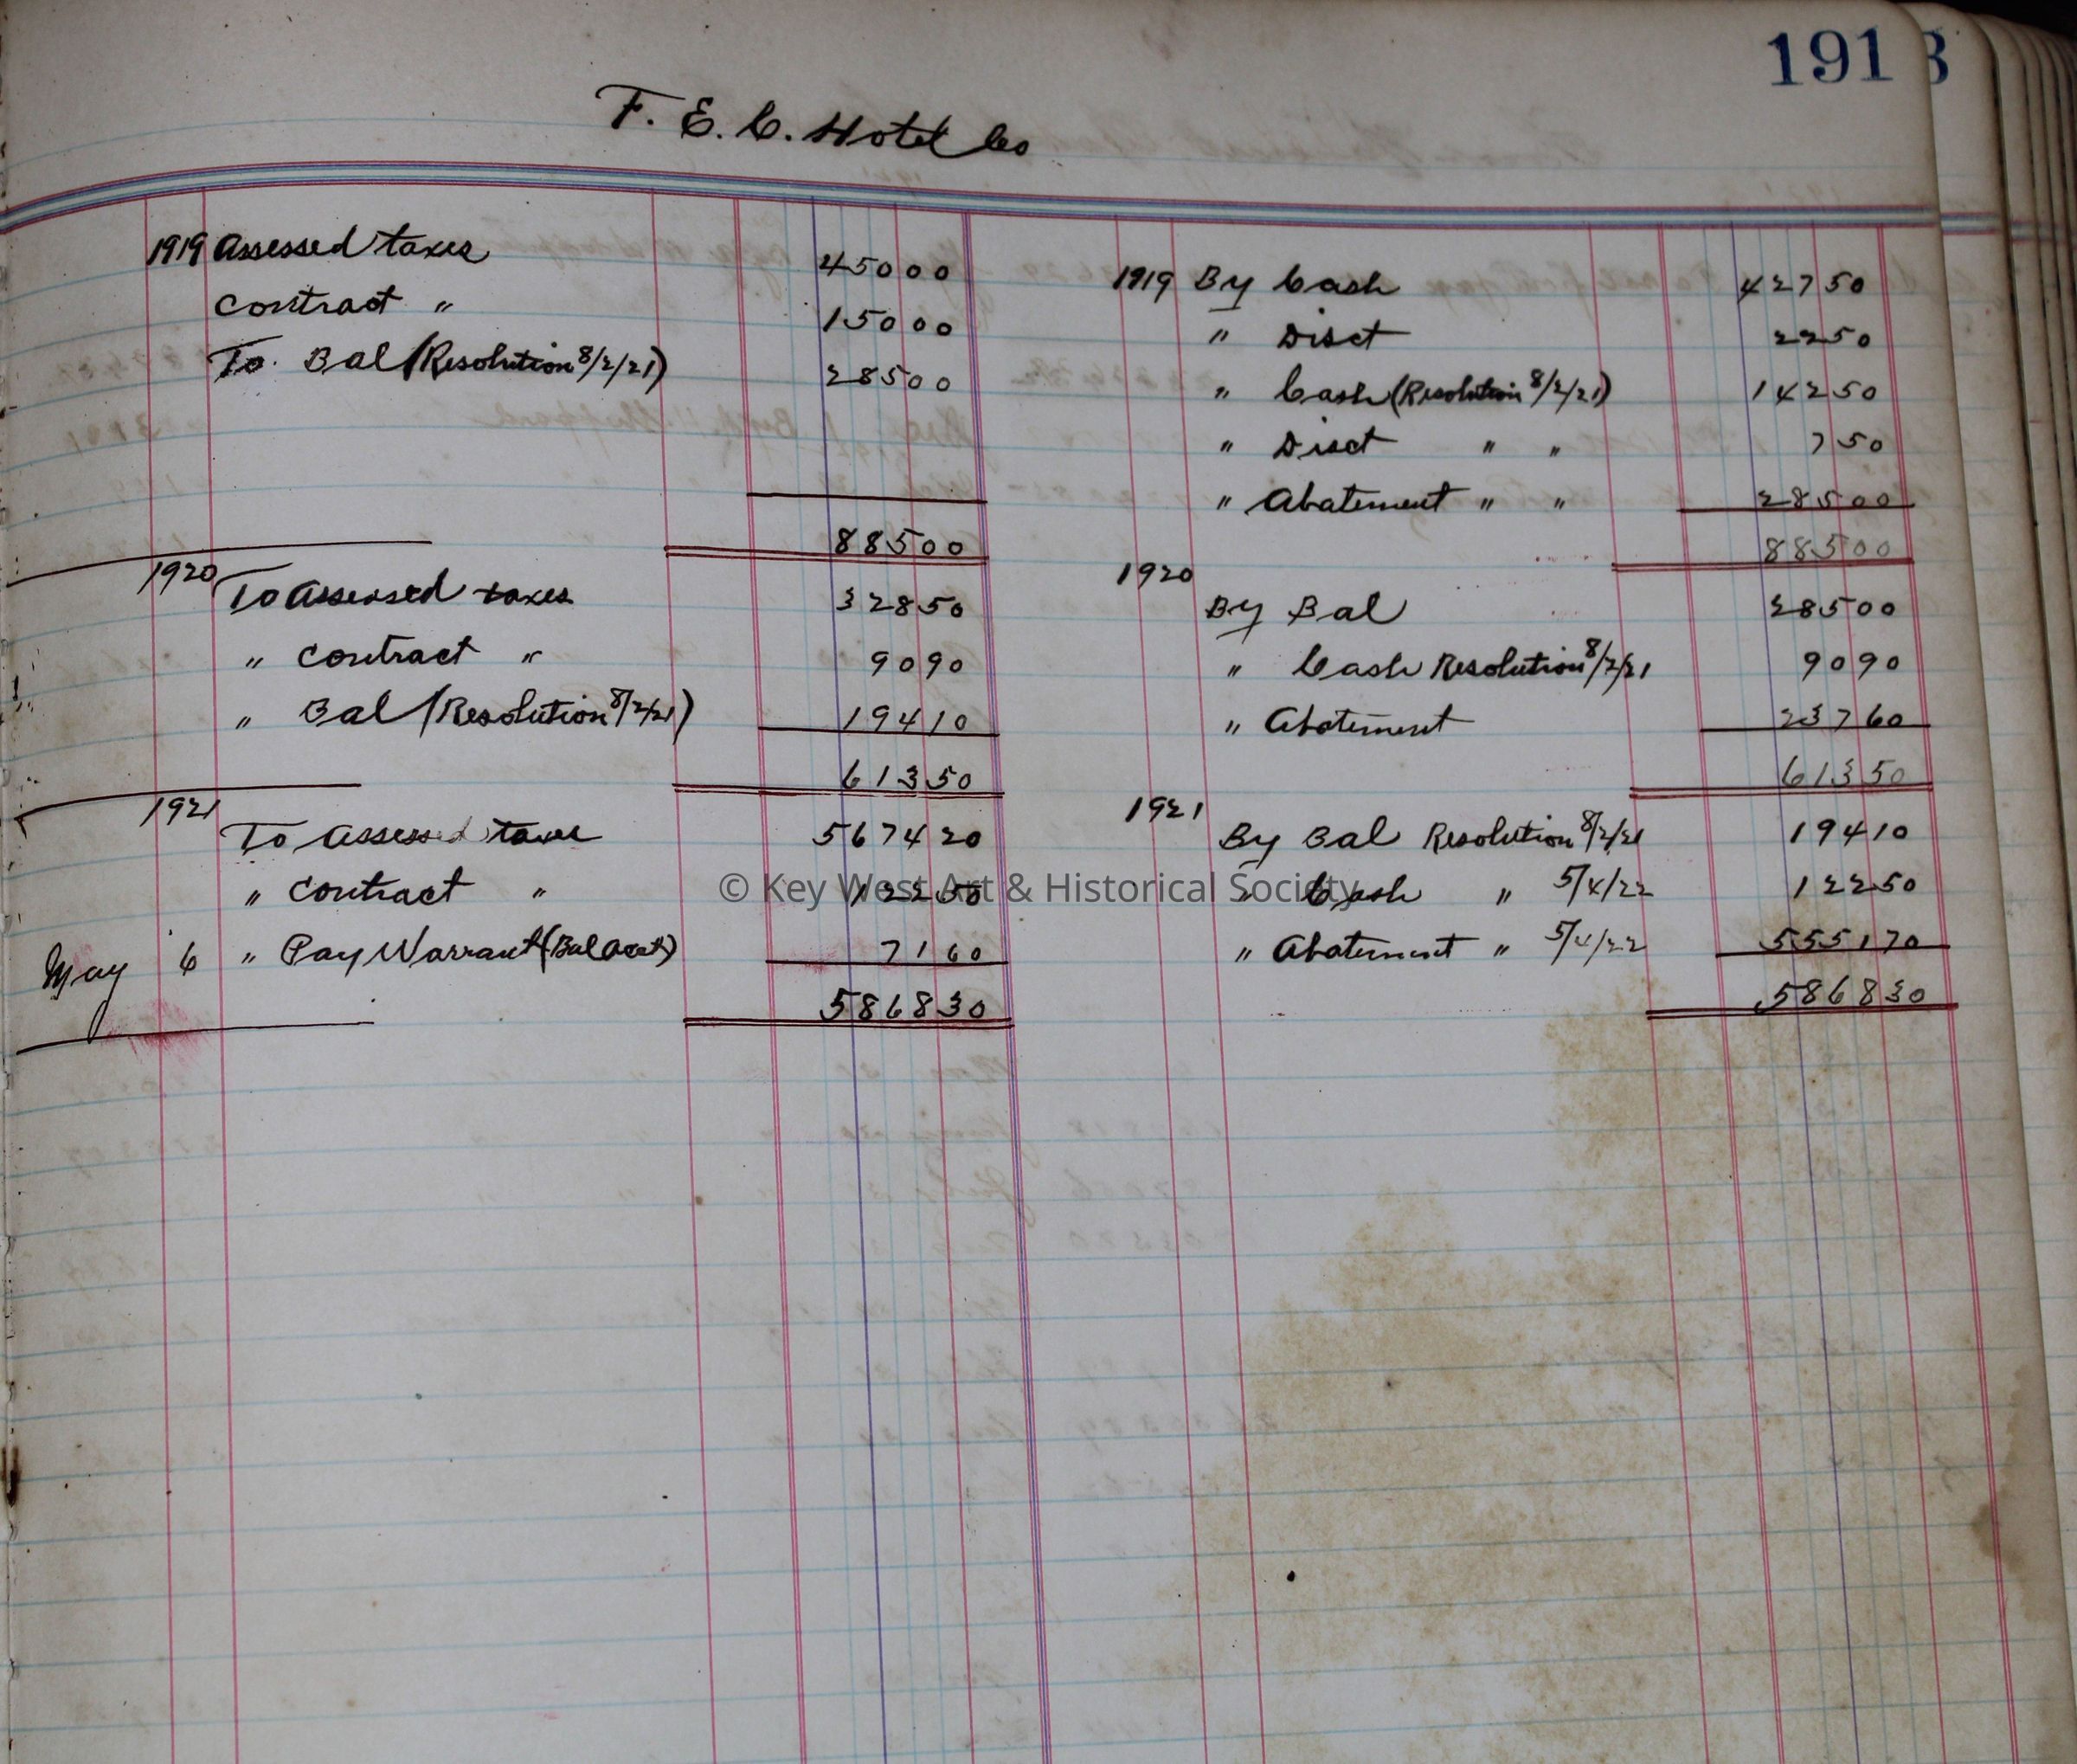 191
3
F. E. C. Hotel Co
1919 Assessed taxes 45000
Contract " 15000
To Bal (Resolution 8/2/21) 28500
88500
1920
To Assessed taxes 32850
" Contract " 9090
" Bal (Resolution 8/2/21) 19410
61350
1921
To Assessed taxes 567420
" Contract " 12250
May 6 " Pay Warrant (Bal Acct) 7160
586830
1919 By Cash 42750
" Disct 2250
" Cash (Resolution 8/2/21) 14250
" Disct " " 750
" Abatement " " 28500
88500
1920
By Bal 28500
" Cash Resolution 8/2/21 9090
" Abatement 23760
61350
1921
By Bal Resolution 8/2/21 19410
" Cash " 5/4/22 12250
" Abatement " 5/4/22 555170
586830
© Key West Art & Historical Society